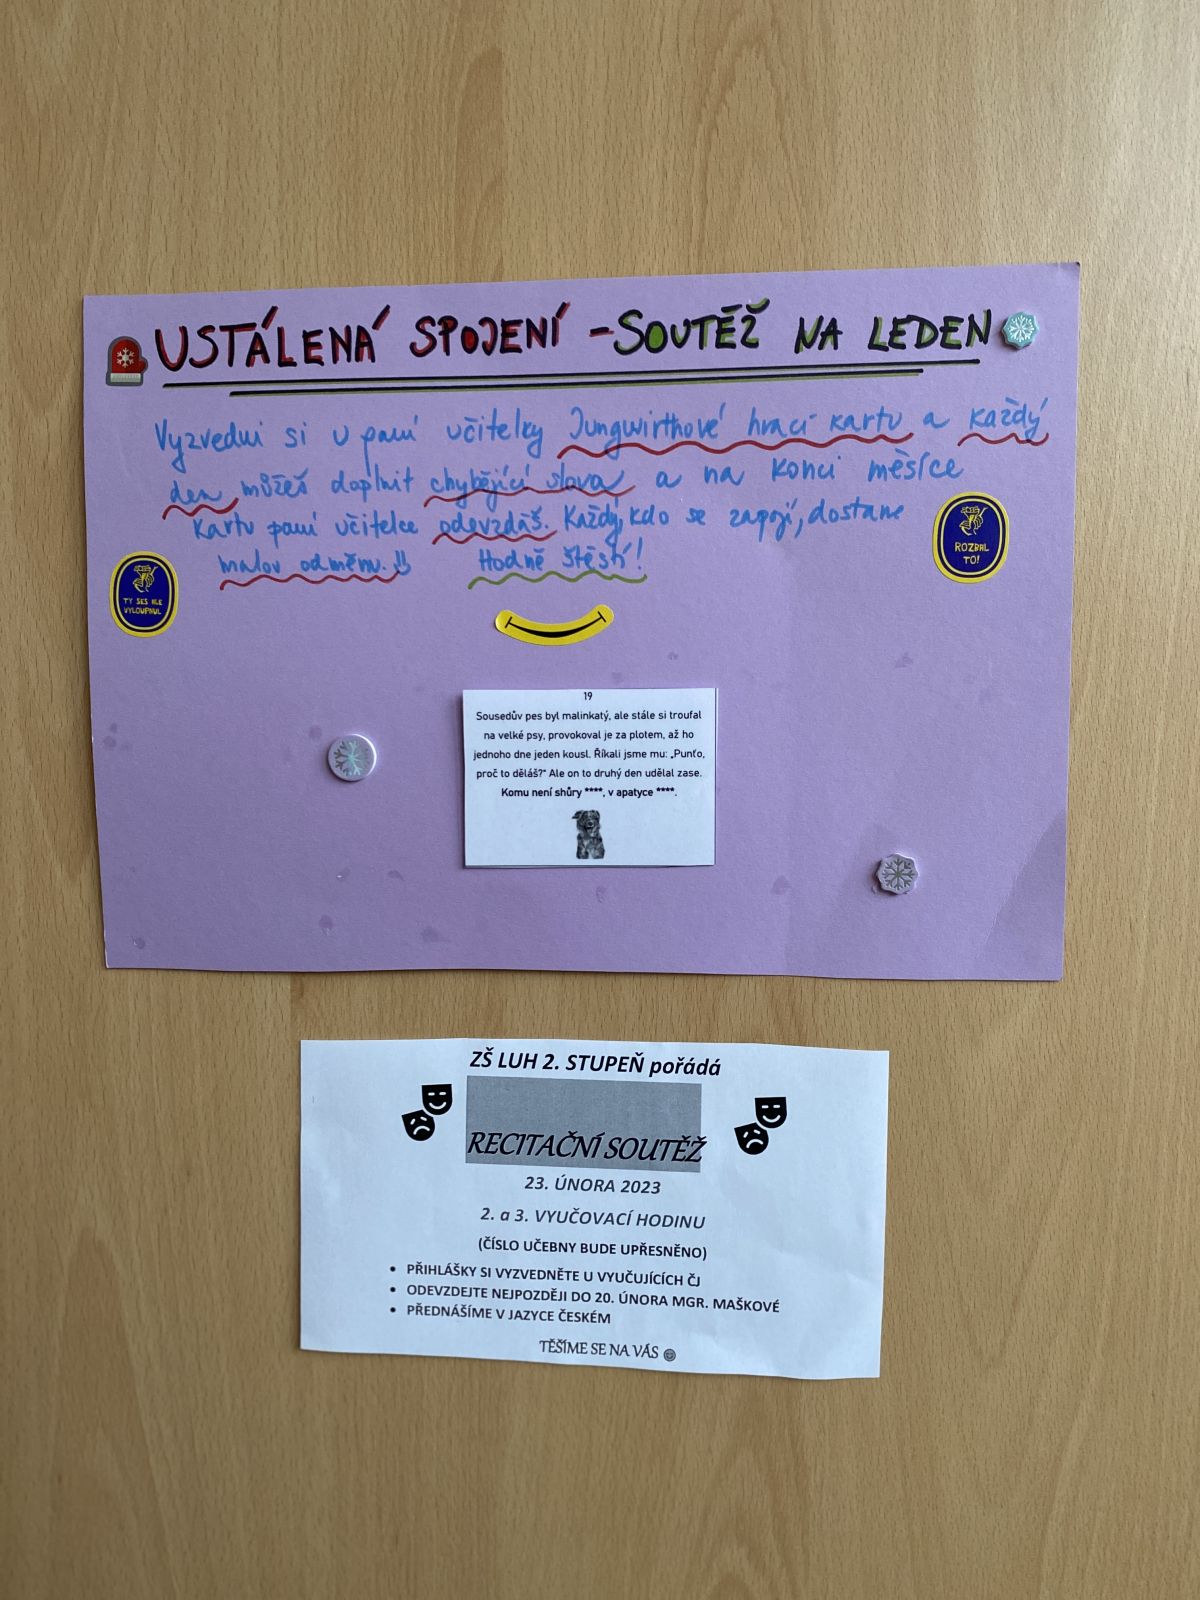 USTÁLENÁ SPOJENÍ - SOUTĚŽ NA LEDEN
Vyzvedni si u paní učitelky Jungwirthové hrací kartu a každý
den můžeš doplnit chybějící slova a na konci měsíce
kartu paní učitelce odevzdáš. Každý, kdo se zapojí, dostane
malou odměnu. Hodně štěstí!
ROZBAL
TO!
TY SES ALE
VYLOUPNUL
19
Sousedův pes byl malinkatý, ale stále si troufal
na velké psy, provokoval je za plotem, až ho
jednoho dne jeden kousl. Říkali jsme mu: „Punťo,
proč to děláš?“ Ale on to druhý den udělal zase.
Komu není shůry ****, v apatyce ****.
ZŠ LUH 2. STUPEŇ pořádá
RECITAČNÍ SOUTĚŽ
23. ÚNORA 2023
2. a 3. VYUČOVACÍ HODINU
(ČÍSLO UČEBNY BUDE UPŘESNĚNO)
• PŘIHLÁŠKY SI VYZVEDNĚTE U VYUČUJÍCÍCH ČJ
• ODEVZDEJTE NEJPOZDĚJI DO 20. ÚNORA MGR. MAŠKOVÉ
• PŘEDNÁŠÍME V JAZYCE ČESKÉM
TĚŠÍME SE NA VÁS ☺